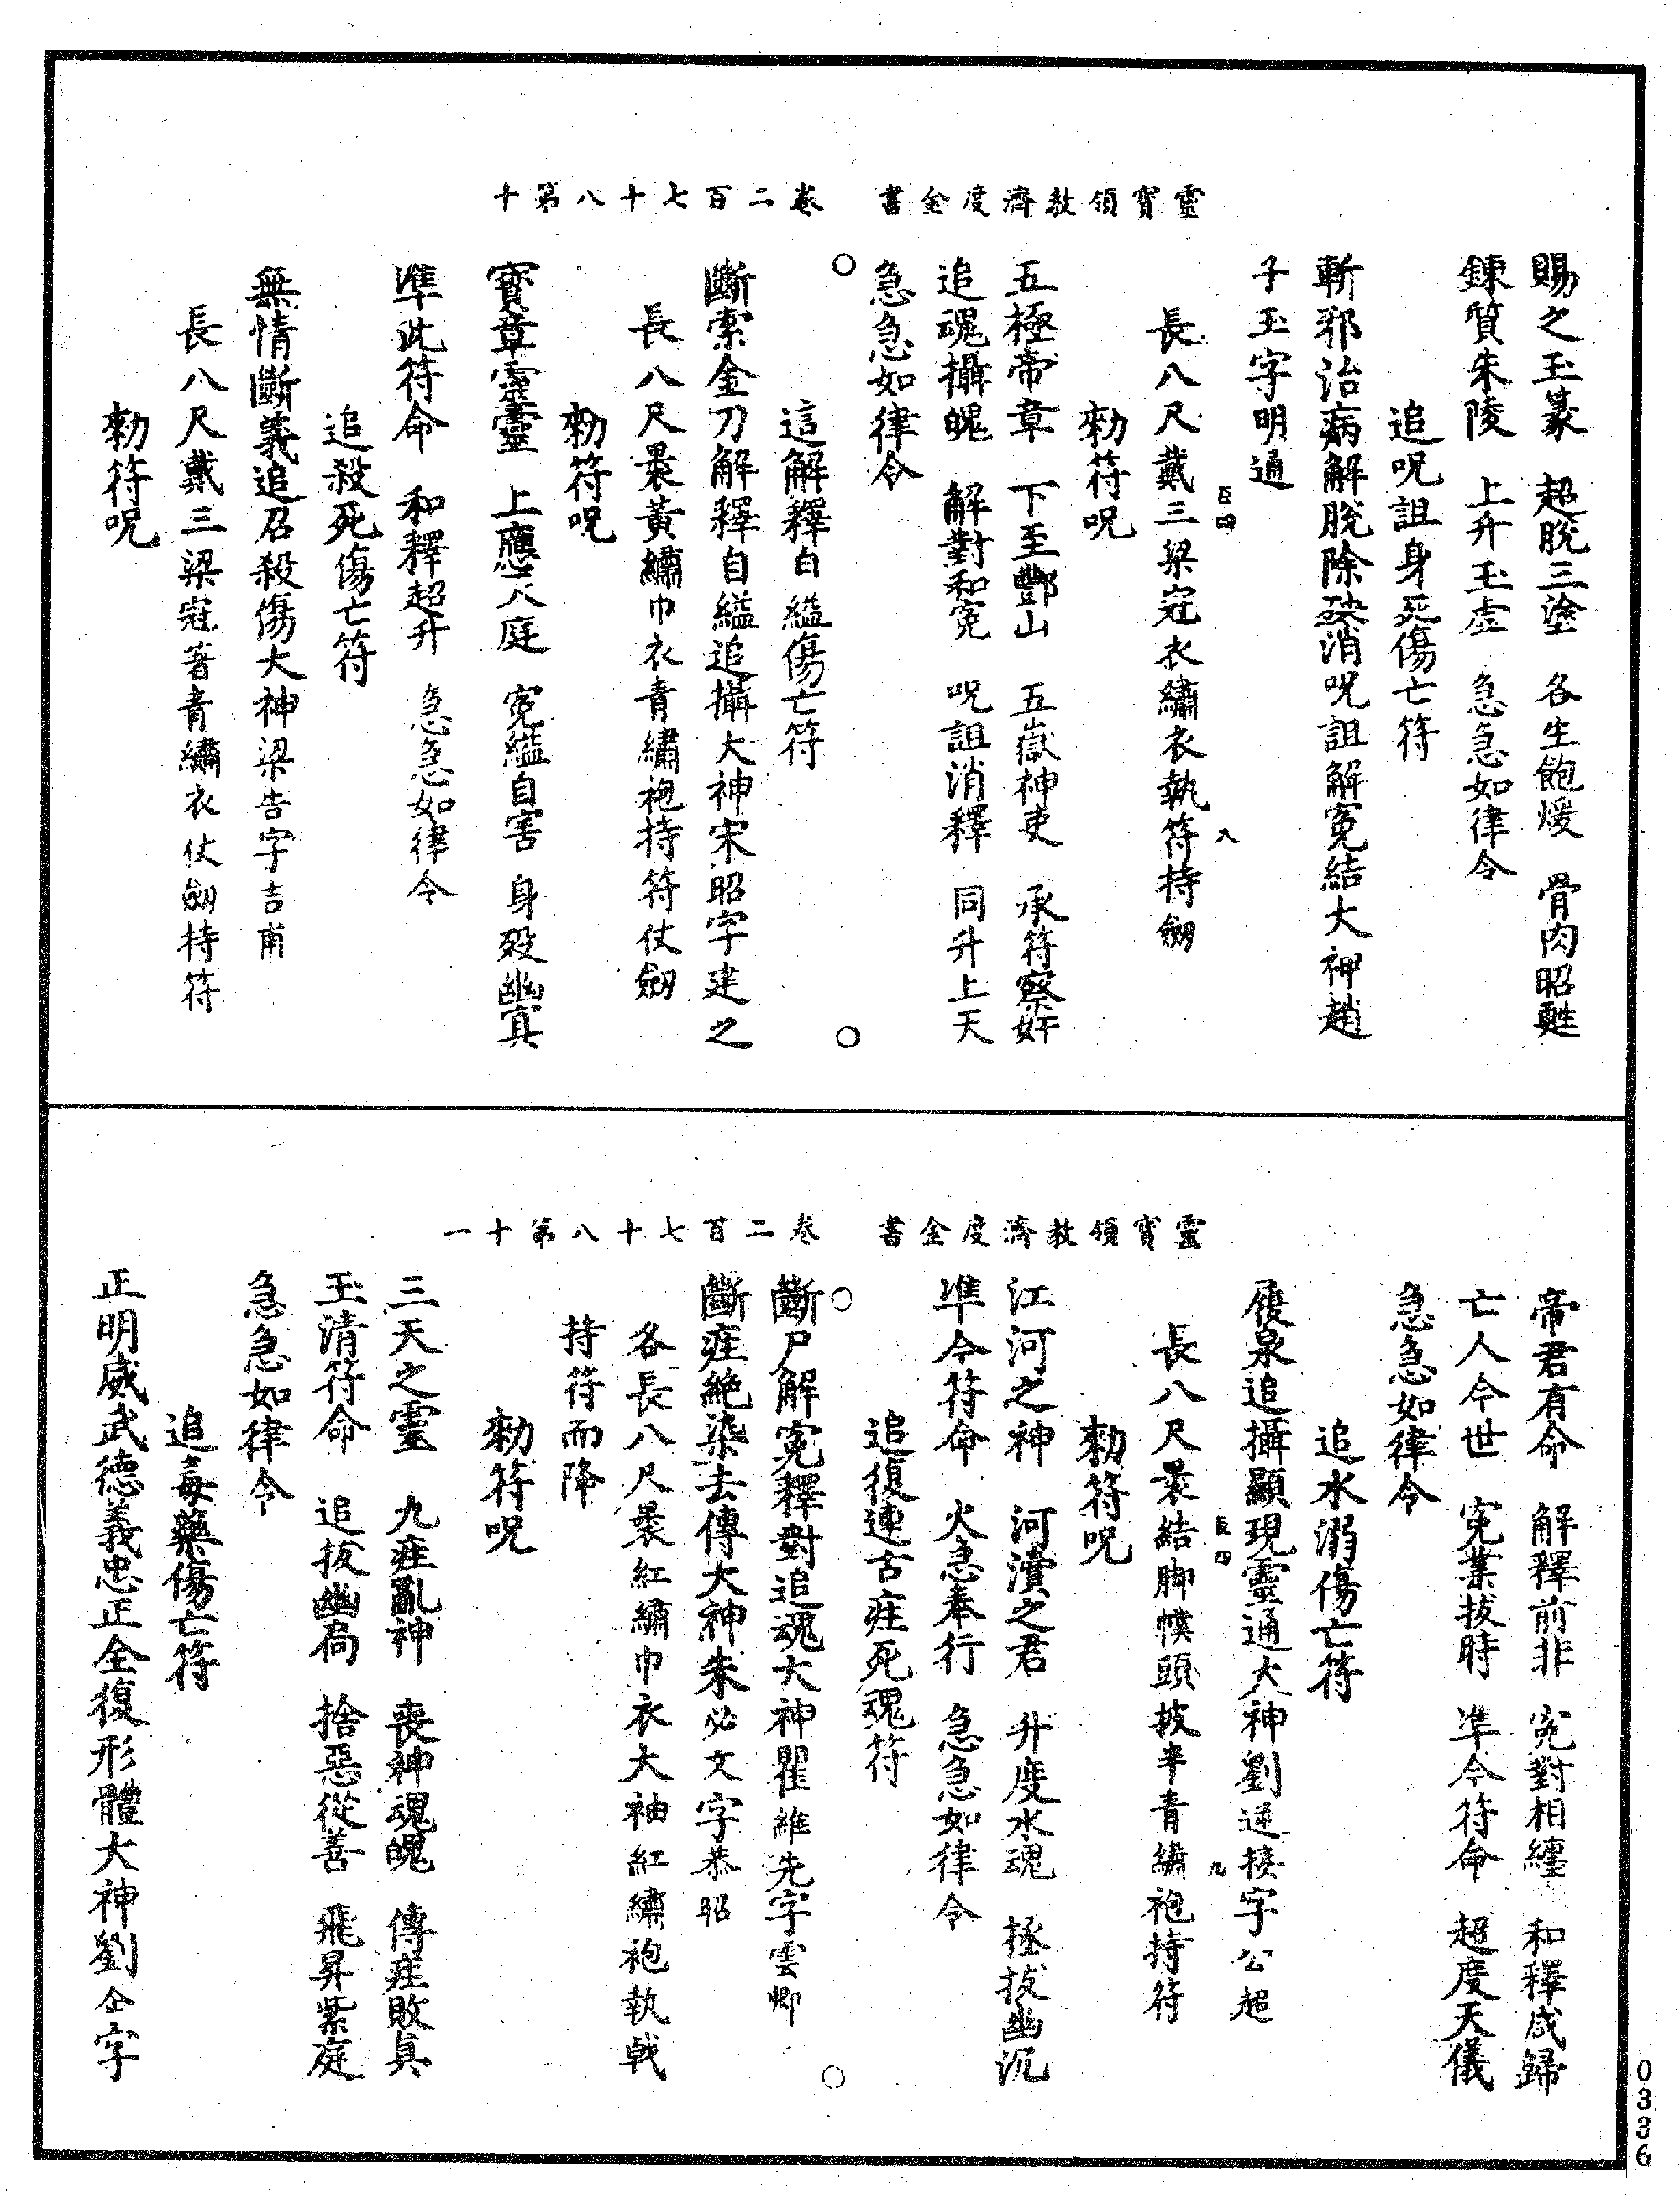 靈寶領教濟度金書　卷二百七十八第十
賜之玉篆　超脫三塗　各生飽煖　骨肉昭甦
鍊質朱陵　上升玉虛　急急如律令
追呪詛身死傷亡符
斬邪治病解脫除殃消呪詛解寃結大神趙
子玉字明通
長八尺戴三梁冠衣繡衣執符持劒
臣四　八
勑符呪
五極帝章　下至酆山　五嶽神吏　承符察奸
追魂攝魄　解對和寃　呪詛消釋　同升上天
急急如律令
這解釋自縊傷亡符
斷索金刀解釋自縊追攝大神宋昭字建之
長八尺裹黃繡巾衣青繡袍持符仗劒
勑符呪
寶章靈靈　上應天庭　寃縊自害　身歿幽冥
準此符命　和釋超升　急急如律令
追殺死傷亡符
無情斷義追召殺傷大神梁告字吉甫
長八尺戴三梁冠著青繡衣仗劒持符
勑符呪
靈寶領教濟度金書　卷二百七十八第十一
帝君有命　解釋前非　寃對相纏　和釋咸歸
亡人今世　寃業拔時　準令符命　超度天儀
急急如律令
追水溺傷亡符
履泉追攝顯現靈通大神劉逆接字公超
臣四　九
長八尺裹結脚幞頭披半青繡袍持符
勑符呪
江河之神　河瀆之君　升度水魂　拯拔幽沉
準令符命　火急奉行　急急如律令
追復連古疰死魂符
斷尸解寃釋對追魂大神瞿維先字雲卿
斷疰絕染去傳大神朱必文字恭昭
各長八尺裹紅繡巾衣大袖紅繡袍執戟
持符而降
勑符呪
三天之靈　九疰亂神　喪神魂魄　傳疰敗真
玉清符命　追拔幽局　捨惡從善　飛昇紫庭
急急如律令
追毒藥傷亡符
正明威武德義忠正全復形體大神劉企字
0336